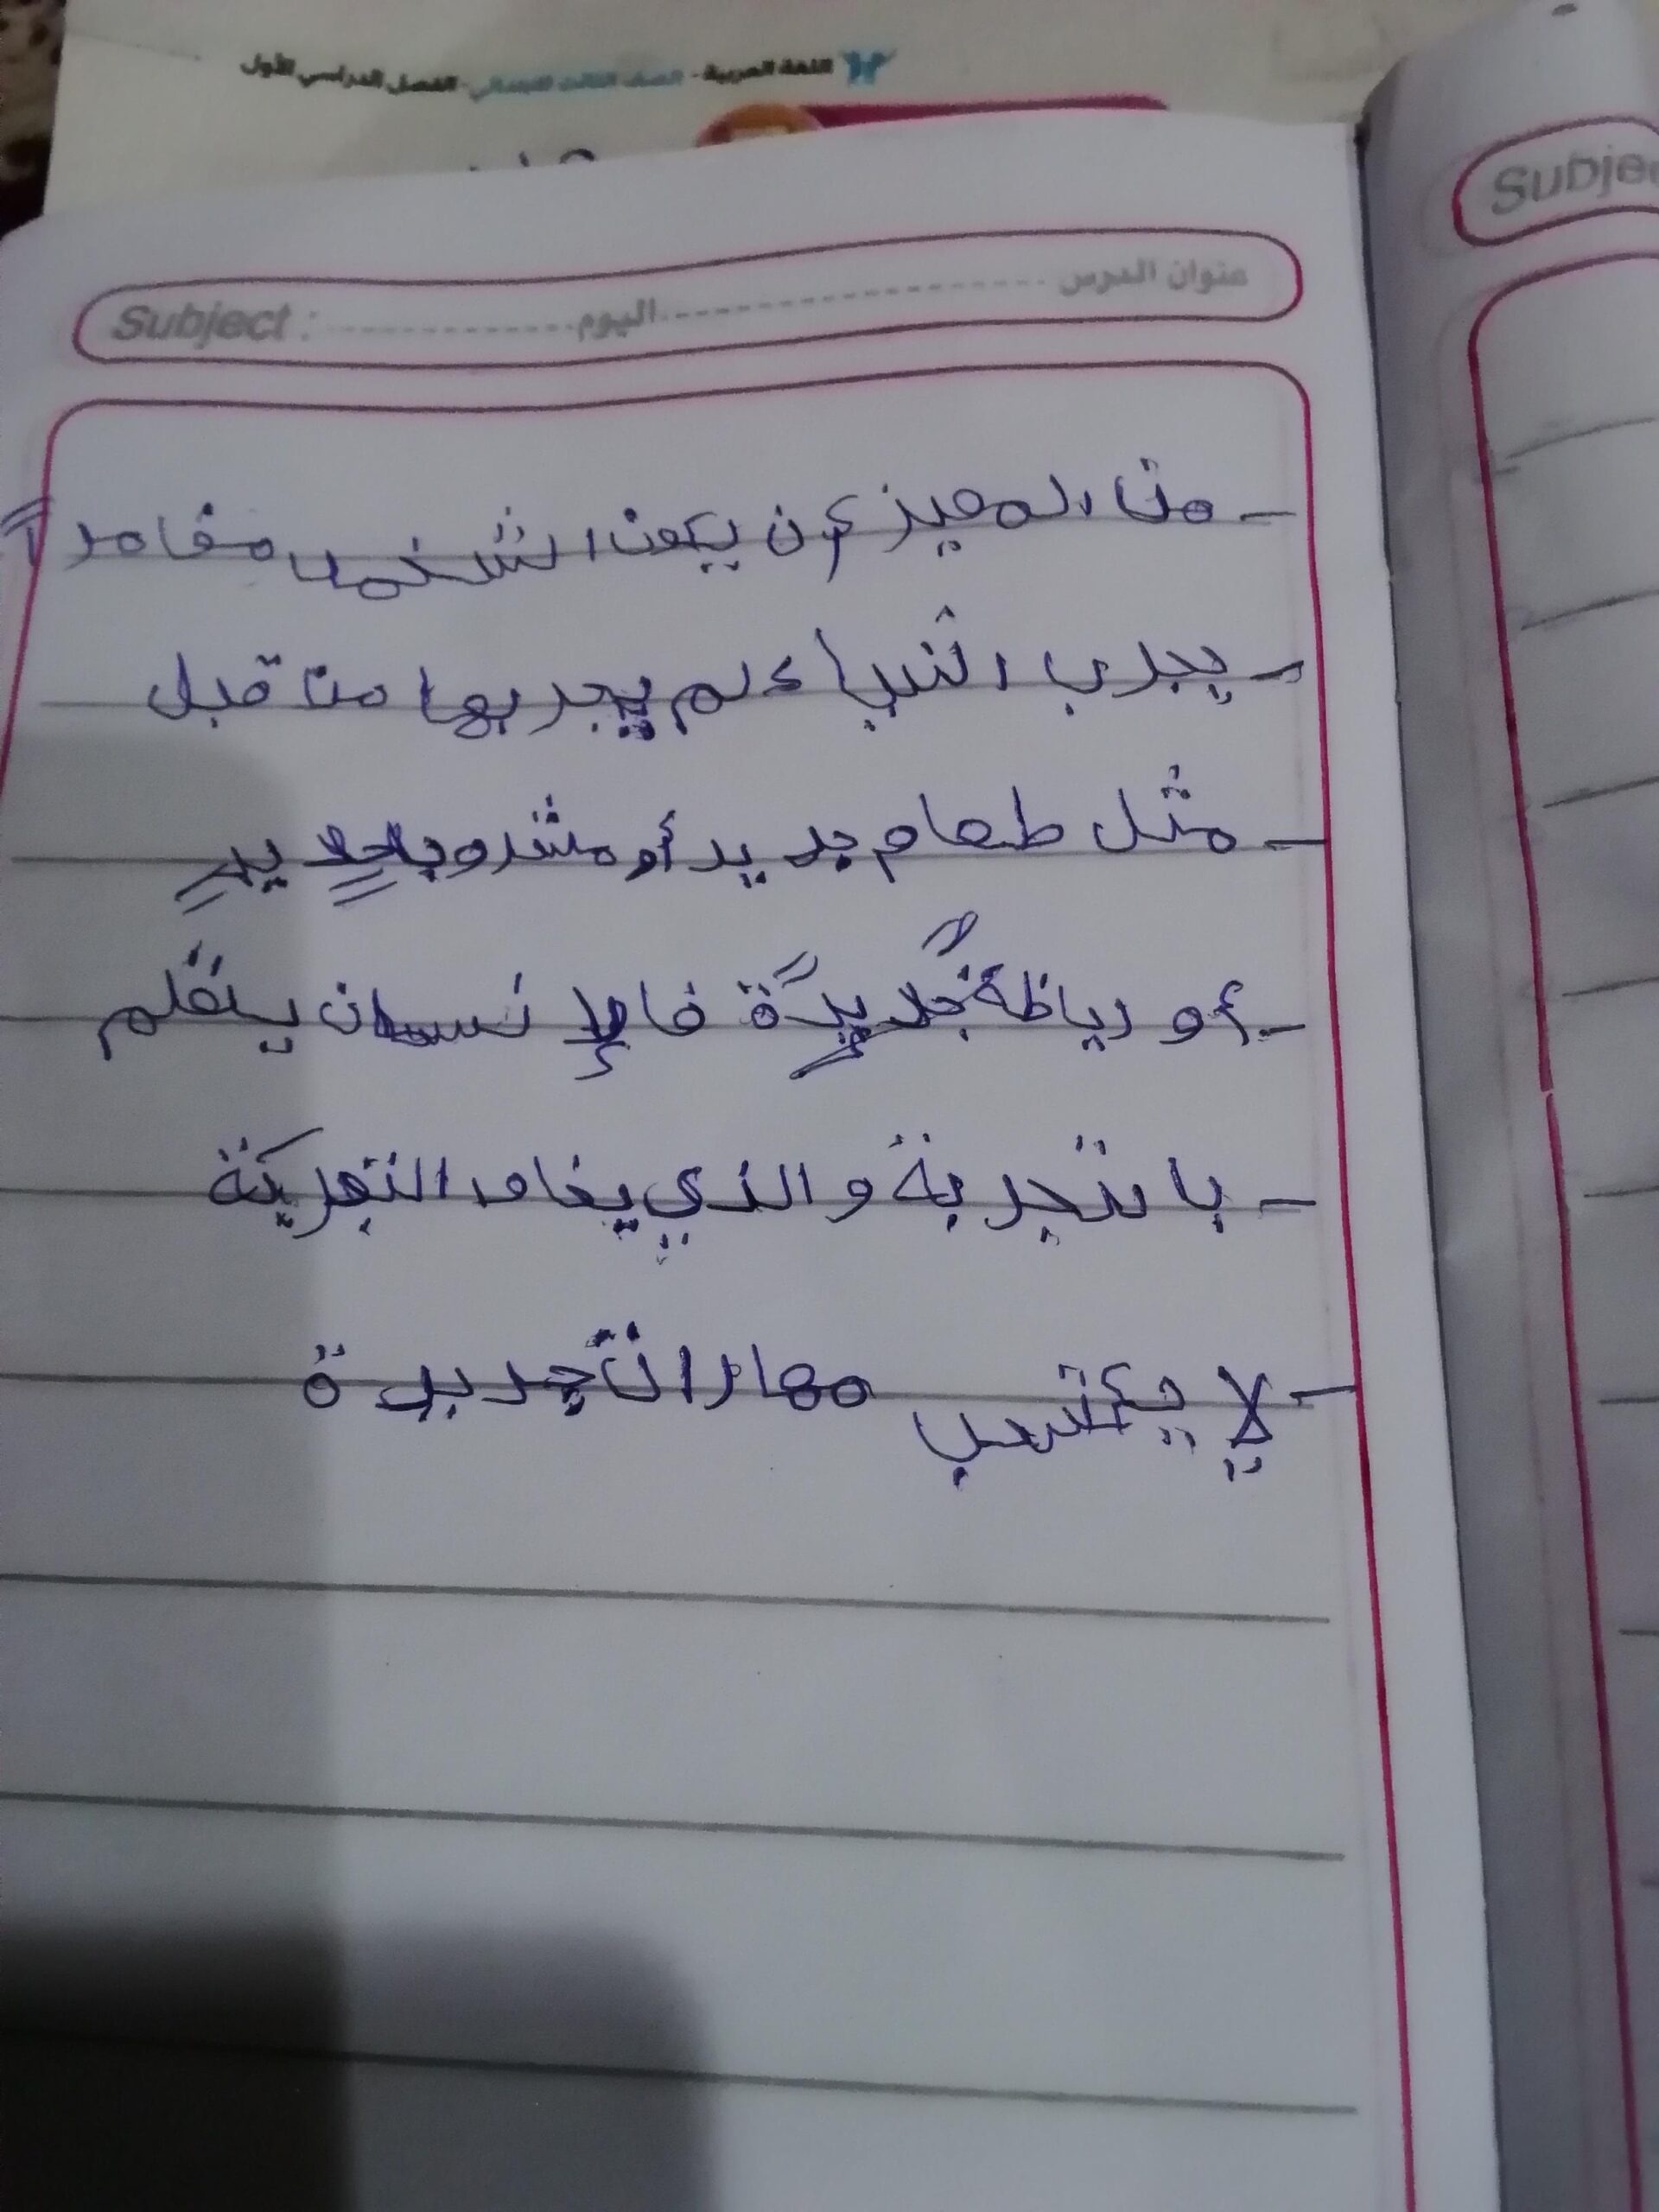 اللغة العربية - الصف الثالث الابتدائي - الفصل الدراسي الأول
عنوان الدرس اليوم Subject :
Subjec
- من المميز أن يكون الشخص مغامراً
- يجرب اشياء لم يجربها من قبل
- مثل طعام جديد أو مشروب جديد
- أو رياظة جديدة فالإنسان يتعلم
- بالتجربة والذي يخاف التجربة
- لا يكتسب مهارات جديدة